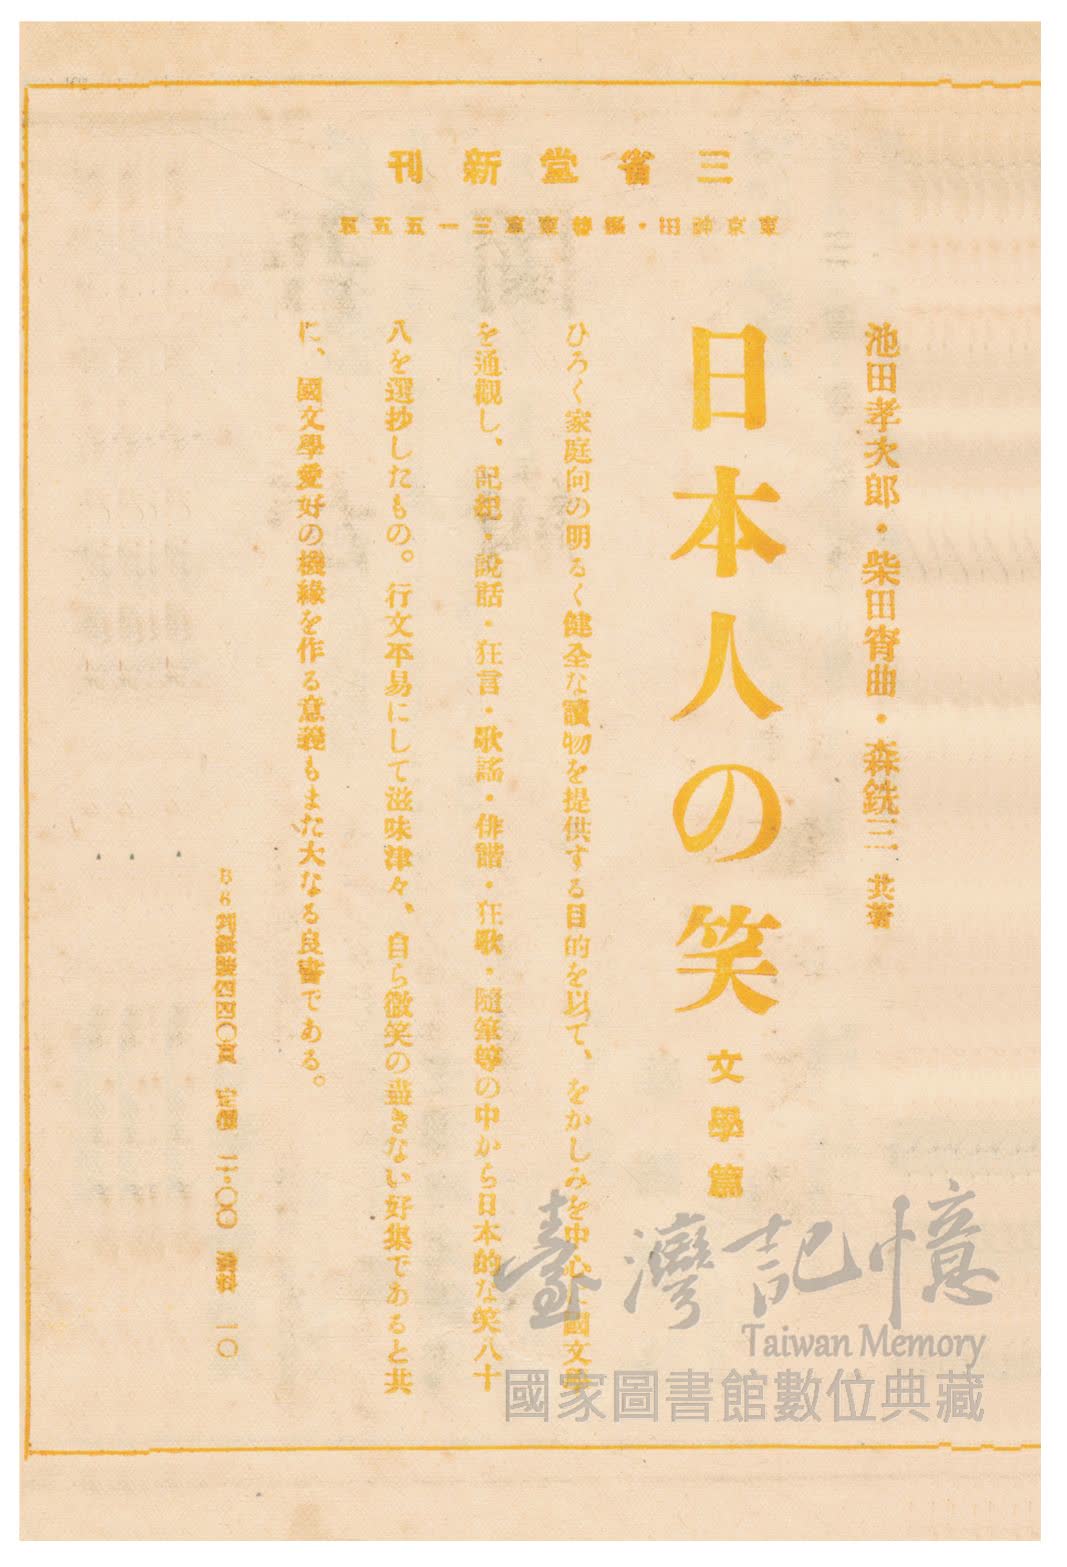 三省堂新刊
東京神田・振替東京三一五五五
池田孝次郎・柴田宵曲・森銑三 共著
日本人の笑 文學篇
ひろく家庭向の明るく健全な讀物を提供する目的を以て、をかしみを中心に國文學
を通觀し、記紀・說話・狂言・歌謠・俳諧・狂歌・隨筆等の中から日本的な笑八十
八を選抄したもの。行文平易にして滋味津々、自ら微笑の盡きない好集であると共
に、國文學愛好の機緣を作る意義もまた大なる良書である。
B6判紙裝四四〇頁 定價 二・〇〇 送料 一〇
臺灣記憶
Taiwan Memory
國家圖書館數位典藏